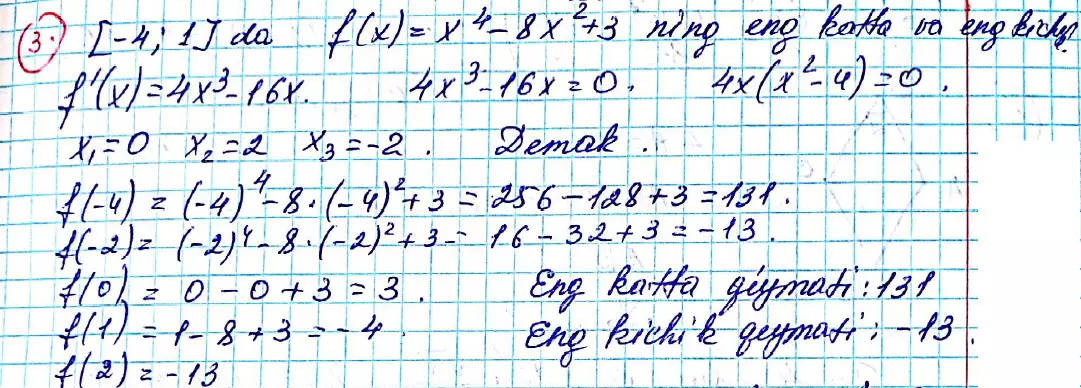 3. [-4; 1] da f(x) = x⁴ - 8x² + 3 ning eng katta va eng kichik
f'(x) = 4x³ - 16x. 4x³ - 16x = 0. 4x(x² - 4) = 0.
x₁ = 0 x₂ = 2 x₃ = -2. Demak.
f(-4) = (-4)⁴ - 8·(-4)² + 3 = 256 - 128 + 3 = 131.
f(-2) = (-2)⁴ - 8·(-2)² + 3 = 16 - 32 + 3 = -13.
f(0) = 0 - 0 + 3 = 3. Eng katta qiymati: 131
f(1) = 1 - 8 + 3 = -4. Eng kichik qiymati: -13.
f(2) = -13